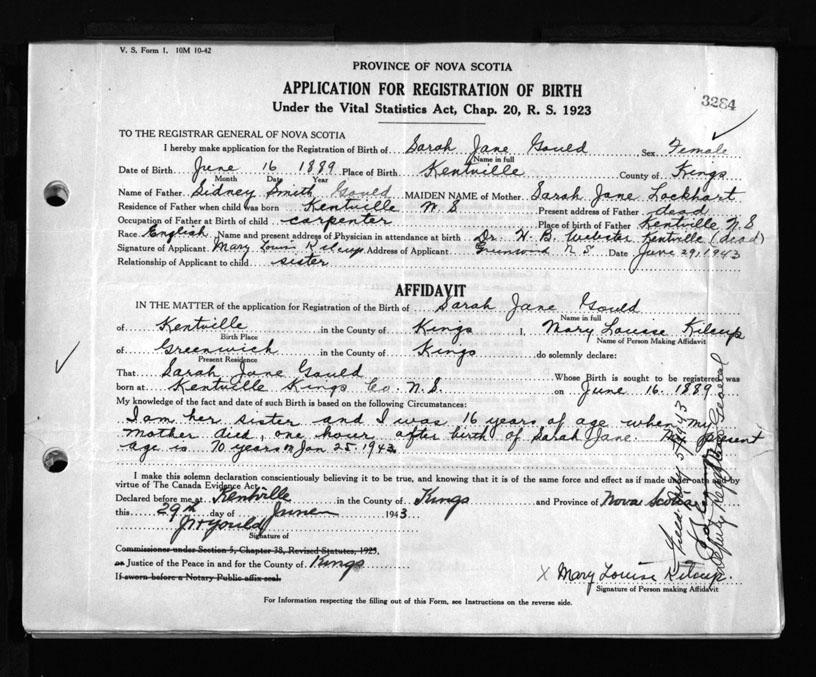 V. S. Form 1. 10M 10-42
PROVINCE OF NOVA SCOTIA
APPLICATION FOR REGISTRATION OF BIRTH
3284
Under the Vital Statistics Act, Chap. 20, R. S. 1923
TO THE REGISTRAR GENERAL OF NOVA SCOTIA
I hereby make application for the Registration of Birth of Sarah Jane Gould Sex Female
Name in full
Date of Birth June 16 1889 Place of Birth Kentville County of Kings
Month Date Year
Name of Father Sidney Smith Gould MAIDEN NAME of Mother Sarah Jane Lockhart
Residence of Father when child was born Kentville N.S. Present address of Father dead
Occupation of Father at Birth of child carpenter Place of birth of Father Kentville N S
Race English Name and present address of Physician in attendance at birth Dr. H. B. Webster Kentville (dead)
Signature of Applicant Mary Louise Kilcup Address of Applicant N S. Date June 29, 1943
Relationship of Applicant to child sister
AFFIDAVIT
IN THE MATTER of the application for Registration of the Birth of Sarah Jane Gould
Name in full
of Kentville in the County of Kings I, Mary Louise Kilcup
Birth Place Name of Person Making Affidavit
of Greenwich in the County of Kings do solemnly declare:
Present Residence
That Sarah Jane Gould Whose Birth is sought to be registered was
born at Kentville Kings Co. N.S. on June 16. 1889
My knowledge of the fact and date of such Birth is based on the following Circumstances:
I am her sister and I was 16 years of age when my
mother died, one hour after birth of Sarah Jane. My present
age is 70 years on Jan 25. 1943.
I make this solemn declaration conscientiously believing it to be true, and knowing that it is of the same force and effect as if made under oath and by
virtue of The Canada Evidence Act.
Declared before me at Kentville in the County of Kings and Province of Nova Scotia
this 29th day of June 1943
Signature of
Commissioner under Section 5, Chapter 38, Revised Statutes, 1923,
or Justice of the Peace in and for the County of Kings
If sworn before a Notary Public affix seal.
X Mary Louise Kilcup.
Signature of Person making Affidavit
For Information respecting the filling out of this Form, see Instructions on the reverse side.
Deputy Registrar General